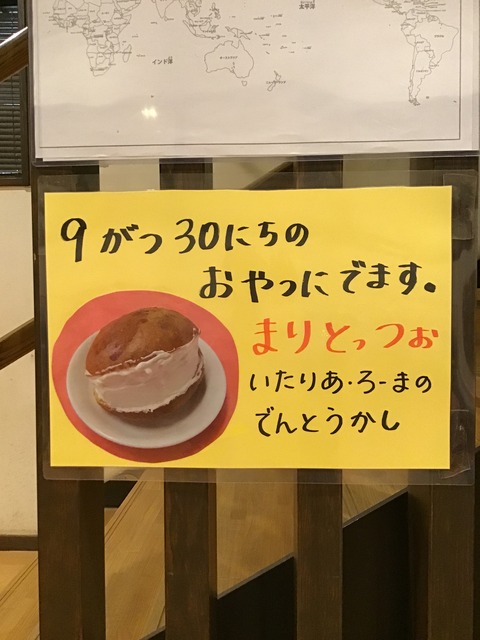 インド洋
太平洋
オーストラリア
9がつ30にちの
おやつにでます。
まりとっつぉ
いたりあ・ろーまの
でんとうかし